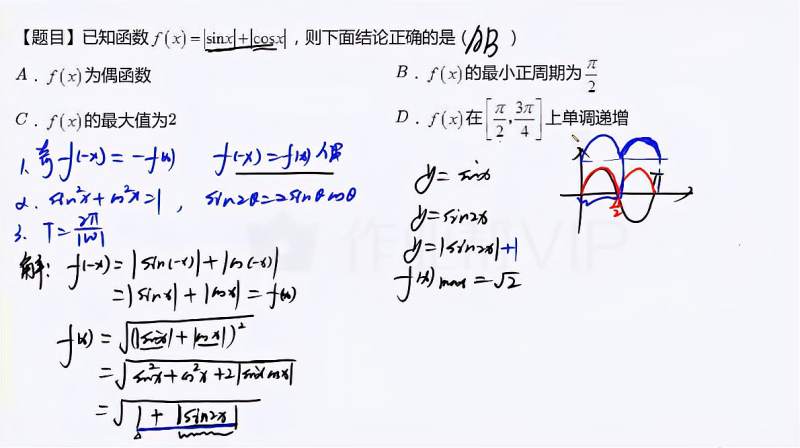 【题目】已知函数 f(x)=|sinx|+|cosx|，则下面结论正确的是（AB）
A．f(x)为偶函数
B．f(x)的最小正周期为π/2
C．f(x)的最大值为2
D．f(x)在[π/2,3π/4]上单调递增
1、奇 f(-x)=-f(x) f(-x)=f(x) 偶
2. sin²x+cos²x=1，sin2θ=2sinθcosθ
3. T=2π/|ω|
解：f(-x)=|sin(-x)|+|cos(-x)|
=|sinx|+|cosx|=f(x)
f(x)=√(|sinx|+|cosx|)²
=√sin²x+cos²x+2|sinxcosx|
=√1+|sin2x|
y=sinx
y=sin2x
y=|sin2x|+1
f(x)max=√2
π/2
π